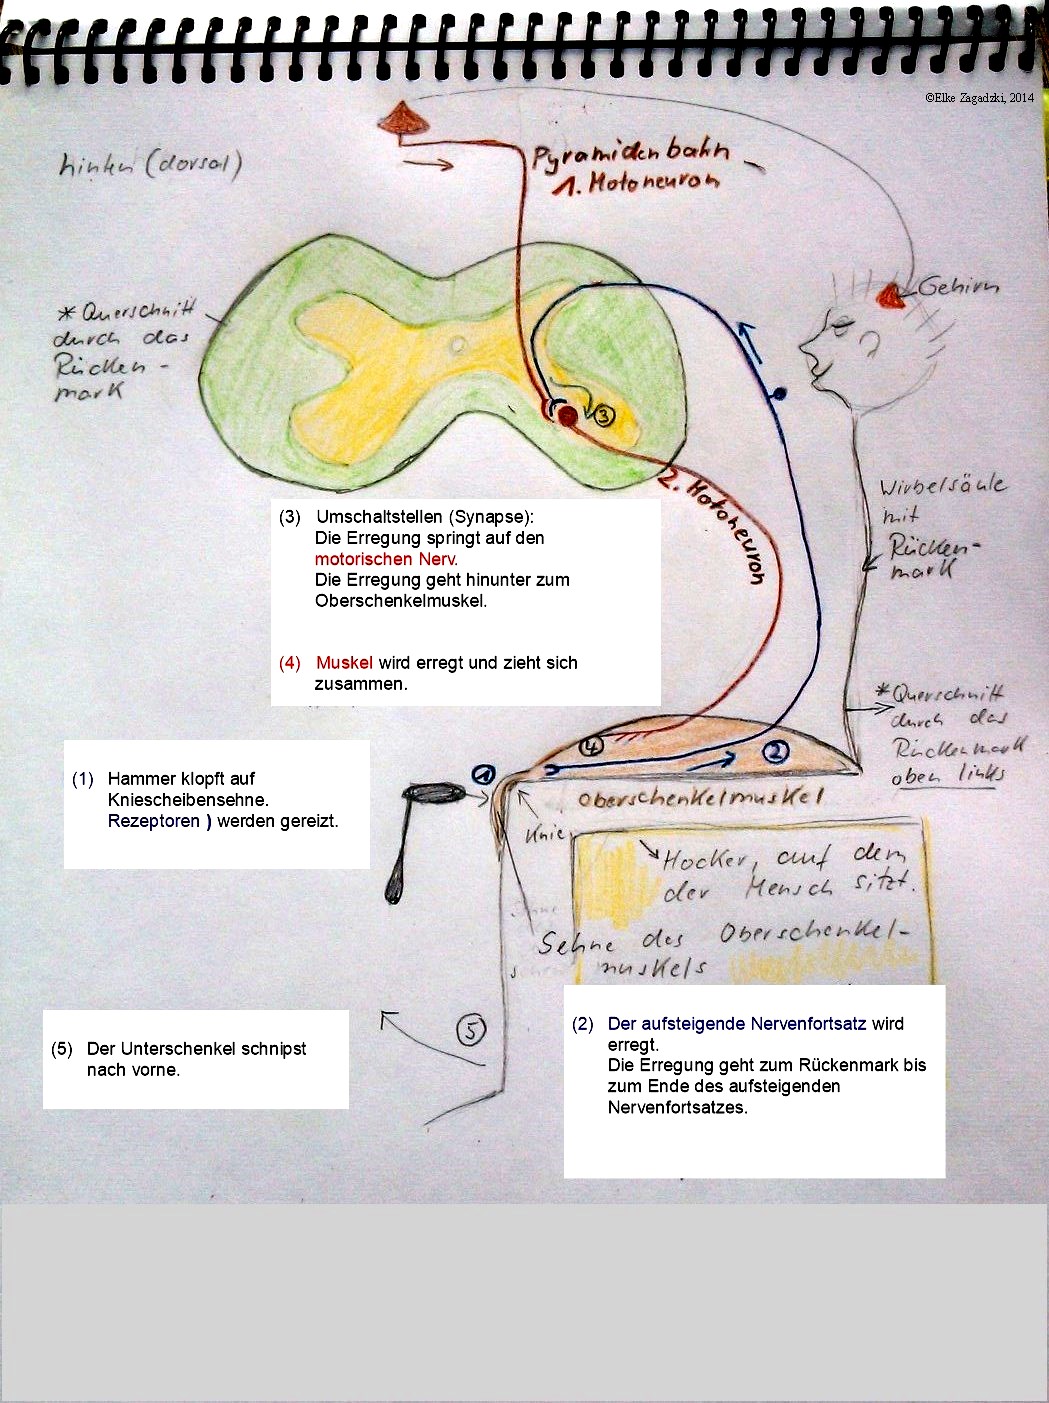 ©Elke Zagadzki, 2014
hinten (dorsal)
Pyramidenbahn
1. Motoneuron
Gehirn
* Querschnitt
durch das
Rücken-
mark
3
2. Motoneuron
Wirbelsäule
mit
Rücken-
mark
(3) Umschaltstellen (Synapse):
Die Erregung springt auf den
motorischen Nerv.
Die Erregung geht hinunter zum
Oberschenkelmuskel.
(4) Muskel wird erregt und zieht sich
zusammen.
* Querschnitt
durch das
Rückenmark
oben links
4
2
1
(1) Hammer klopft auf
Kniescheibensehne.
Rezeptoren ) werden gereizt.
Oberschenkelmuskel
Knie
Hocker, auf dem
der Mensch sitzt.
Sehne des Oberschenkel-
muskels
5
(5) Der Unterschenkel schnipst
nach vorne.
(2) Der aufsteigende Nervenfortsatz wird
erregt.
Die Erregung geht zum Rückenmark bis
zum Ende des aufsteigenden
Nervenfortsatzes.